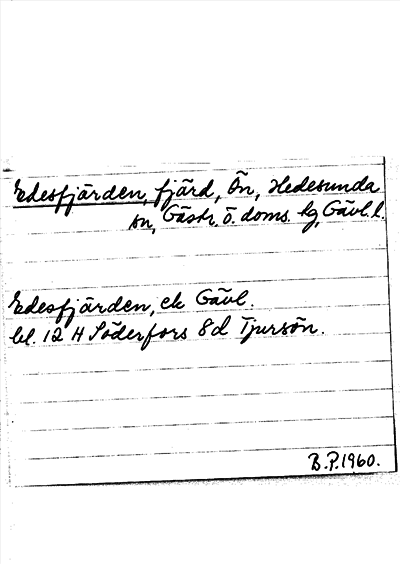 Edesfjärden, fjärd, Ön, Hedesunda
sn, Gästr. ö. doms. hg, Gävl. l.
Edesfjärden, ek Gävl.
bl. 12 H Söderfors 8d Tjursön.
B.P.1960.